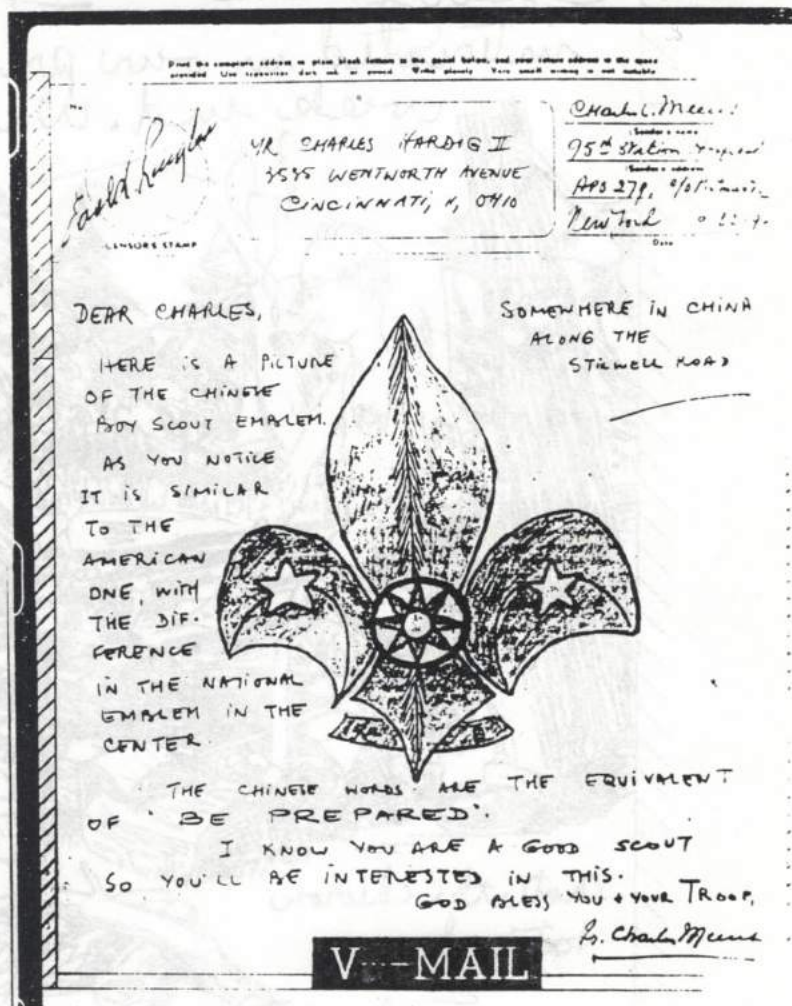 Print the complete address in plain block letters in the panel below, and your return address in the space
provided. Use typewriter, dark ink, or pencil. Write plainly. Very small writing is not suitable.
CENSOR'S STAMP
MR CHARLES HARDIG II
3535 WENTWORTH AVENUE
CINCINNATI, OHIO
(Sender's name)
95th Station
(Sender's address)
APO 279, c/o
New York
Date
DEAR CHARLES,
SOMEWHERE IN CHINA
ALONG THE
STILWELL ROAD
HERE IS A PICTURE
OF THE CHINESE
BOY SCOUT EMBLEM.
AS YOU NOTICE
IT IS SIMILAR
TO THE
AMERICAN
ONE, WITH
THE DIF-
FERENCE
IN THE NATIONAL
EMBLEM IN THE
CENTER.
THE CHINESE WORDS ARE THE EQUIVALENT
OF "BE PREPARED".
I KNOW YOU ARE A GOOD SCOUT
SO YOU'LL BE INTERESTED IN THIS.
GOD BLESS YOU + YOUR TROOP,
Fr. Charles Meeus
V···-MAIL